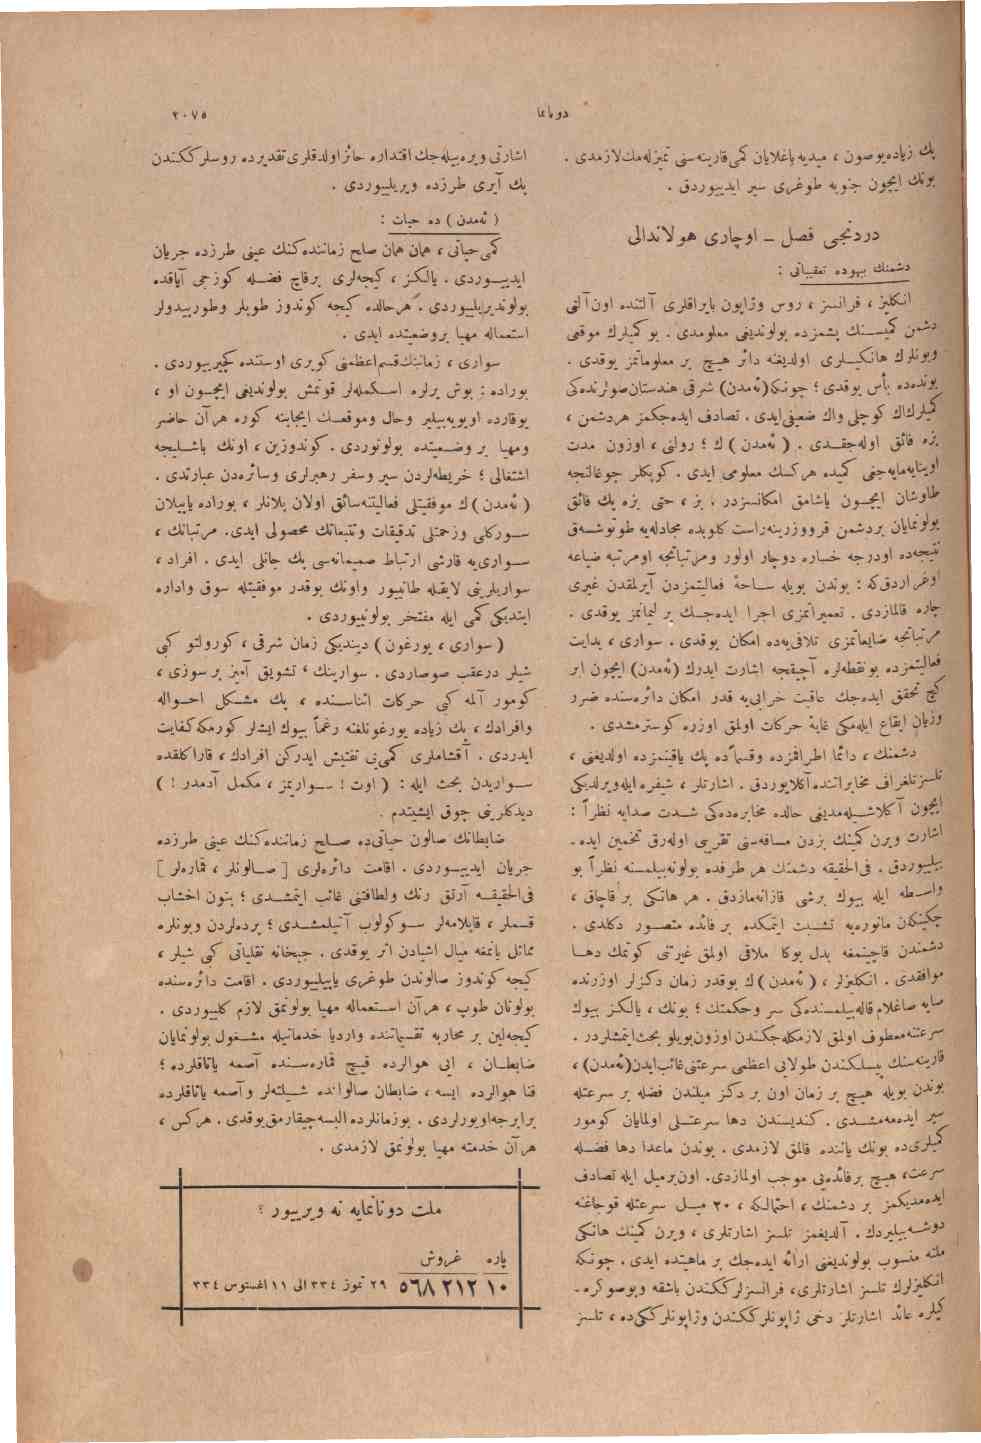 دونانما
٢٠٧٥
پك زیاده یوصون ، میدیه باغلایان كمی قارینه سنی تمیزله مك لازمدی .
بونك ایچون جنوبه طوغری سیر ایدییوردق .
دردنجی فصل ــ اوچاری هولاندالی
دشمنك بیهوده تعقیباتی :
انكلیز ، فرانسز ، روس وژاپون بایراقلری آلتنده اون آلتی
دشمن كمیسنك پشمزده بولوندیغی معلومدی . بو كمیلرك موقعی
وبونلرك هانكیلری اولدیغنه دائر هیچ بر معلوماتمز یوقدی .
بونده ده بأس یوقدی ؛ چونكه (ئه مدن) شرقی هندستان صولرنده كی
كمیلرك اك كوچكی واك ضعیفی ایدی . تصادف ایده جكمز هر دشمن ،
بزه فائق اوله جقدی . ( ئه مدن ) ك ؛ رولنی ، اوزون مدت
اوینایه مایه جغی كمیده هركسك معلومی ایدی . كوپكلر چوغالنجه
طاوشان ایچون یاشامق امكانسزدر . بز ، حتی بزه پك فائق
بولونمایان بر دشمن قرووزرینه راست كلوبده مجادله یه طوتوشه ق
نتیجه ده اودرجه خساره دوچار اولور ومرتباتجه اومرتبه ضایعه
اوغراردق كه : بوندن بویله ساحهٔ فعالیتمزدن آیرلمقدن غیری
چاره قالمازدی . تعمیراتمزی اجرا ایده جك بر لیمانمز یوقدی .
مرتباتجه ضایعاتمزی تلافی یه ده امكان یوقدی . سواری ، بدایت
فعالیتمزده بو نقطه لره آچیقجه اشارت ایدرك (ئه مدن) ایچون ایر
كیچ تحقق ایده جك عاقبت خرابی یه قدر امكان دائره سنده ضرر
وزیان ایقاع ایله مكی غایهٔ حركات اولمق اوزره كوسترمشدی .
دشمنك ، دائما اطرافمزده وقسماً ده پك یاقینمزده اولدیغی ،
تلسز تلغراف مخابراتنده آكلایوردق . اشارتلر ، شیفره ایله ویرلدیكی
ایچون آكلاشیله مدیغی حالده مخابره ده كی شدت صدایه نظراً :
اشارت ویرن كمینك بزدن مسافه سنی تقریبی اوله رق تخمین ایده ـ
بیلییوردق . فی الحقیقه دشمنك هر طرفده بولونه بیلمسنه نظراً بو
واسطه ایله بیوك برشی قازانه مازدق . هر هانكی بر قاچاق ،
چكینكن مانوره یه تشبث ایتمكده بر فائده متصور دكلدی .
دشمندن قاچینمغه بدل بوكا ملاقی اولمق غیرتنی كوتمك دها
موافقدی . انكلیزلر ، (ئه مدن) ك بوقدر زمان دكزلر اوزرنده
صایه صاغلام قاله بیلمسنده كی سر وحكمتك ؛ بونك ، یالكز بیوك
سرعتنه معطوف اولمق لازمكله جكندن اوزون بویلو بحث ایتمشلردر .
قارینه سنك پیسلكندن طولایی اعظمی سرعتنی غائب ایدن (ئه مدن) ،
بوندن بویله هیچ بر زمان اون بر دكز میلندن فضله بر سرعتله
سیر ایده مه مشدی . كندیسندن دها سرعتلی اولمایان كومور
كمیلری ده بونك یاننده قالمق لازمدی . بوندن ماعدا دها فضله
سرعت ، هیچ بر فائده یی موجب اولمازدی . اون بر میل ایله تصادف
ایده مدیكمز بر دشمنك ، احتمالكه ، ٢٠ میل سرعتله قوجاغنه
دوشه بیلیردك . آلدیغمز تلسز اشارتلری ، ویرن كمینك هانكی
ملته منسوب بولوندیغنی ارائه ایده جك بر ماهیتده ایدی . چونكه
انكلیزلرك تلسز اشارتلری ، فرانسزلركندن باشقه وبوصوكره ـ
كیلره عائد اشارتلر دخی ژاپونلركندن وژاپونلركی ده ، تلسز
اشارتی ویره بیله جك اقتداره حائز اولدقلری تقدیرده روسلركندن
پك آیری طرزده ویریلییوردی .
( ئه مدن ) ده حیات :
كمی حیاتی ، همان همان صلح زماننده كنك عینی طرزده جریان
ایدییوردی . یالكز ، كیجه لری برقاچ فضله كوزجی آیاقده
بولوندیریلییوردی . هر حالده كیجه كوندوز طوپلر وطورپیدولر
استعماله مهیا بر وضعیتده ایدی .
سواری ، زماننك قسم اعظمنی كوپری اوستنده كچیرییوردی .
بوراده : بوش یرلره اسكمله لر قونمش بولوندیغی ایچون او ،
یوقارده اویویه بیلیر وحال وموقعك ایجابنه كوره هر آن حاضر
ومهیا بر وضعیتده بولونوردی . كوندوزین ، اونك باشلیجه
اشتغالی ؛ خریطه لردن سیر وسفر رهبرلری وسائره دن عبارتدی .
(ئه مدن) ك موفقیتلی فعالیتنه سائق اولان پلانلر ، بوراده یاپیلان
سوركلی وزحمتلی تدقیقات وتتبعاتك محصولی ایدی . مرتباتك ،
سواری یه قارشی ارتباط صمیمانه سی پك جانلی ایدی . افراد ،
سواریلرینی لایقیله طانییور واونك بوقدر موفقیتله سوق واداره
ایتدیكی كمی ایله مفتخر بولونییوردی .
( سواری ، یورغون ) دیندیكی زمان شرقی ، كورولتو كبی
شیلر درعقب صوصاردی . سوارینك ، تشویق آمیز بر سوزی ،
كومور آلمه كبی حركات اثناسنده ، پك مشكل احواله
وافرادك ، پك زیاده یورغونلغنه رغماً بیوك ایشلر كورمكه كفایت
ایدردی . آقشاملری كمی یی تفتیش ایدركن افرادك ، قاراكلقده
سواریدن بحث ایله : ( اوت ! سواریمز ، مكمل آدمدر ! )
دیدكلرینی چوق ایشیتدم .
ضابطانك صالون حیاتی ده صلح زماننده كنك عینی طرزده
جریان ایدییوردی . اقامت دائره لری [ صالونلر ، قماره لر ]
فی الحقیقه آرتق رنك ولطافتنی غائب ایتمشدی ؛ بتون اخشاب
قسملر ، قاپلامه لر سوكولوب آتیلمشدی ؛ پرده لردن وبونلره
مماثل یانمغه میال اشیادن اثر یوقدی . جبخانه نقلیاتی كبی شیلر ،
كیجه كوندوز صالوندن طوغری یاپیلییوردی . اقامت دائره سنده
بولونان طوپ ، هر آن استعماله مهیا بولونمق لازم كلییوردی .
كیجه لین بر محاربه تقسیماتنده واردیا خدماتیله مشغول بولونمایان
ضابطان ، ایی هوالرده قیچ قماره سنده آصمه یاتاقلرده ؛
فنا هوالرده ایسه ، ضابطان صالوننده شیلته لر وآصمه یاتاقلرده
برابرجه اویورلردی . بو زمانلرده البسه چیقارمق یوقدی . هركس ،
هر آن خدمته مهیا بولونمق لازمدی .
ملت دونانمایه نه ویرییور ؟
پاره   غروش
١٠ ٥٦٨٢١٢   ٢٩ تموز ٣٣٤ الی ١١ اغستوس ٣٣٤